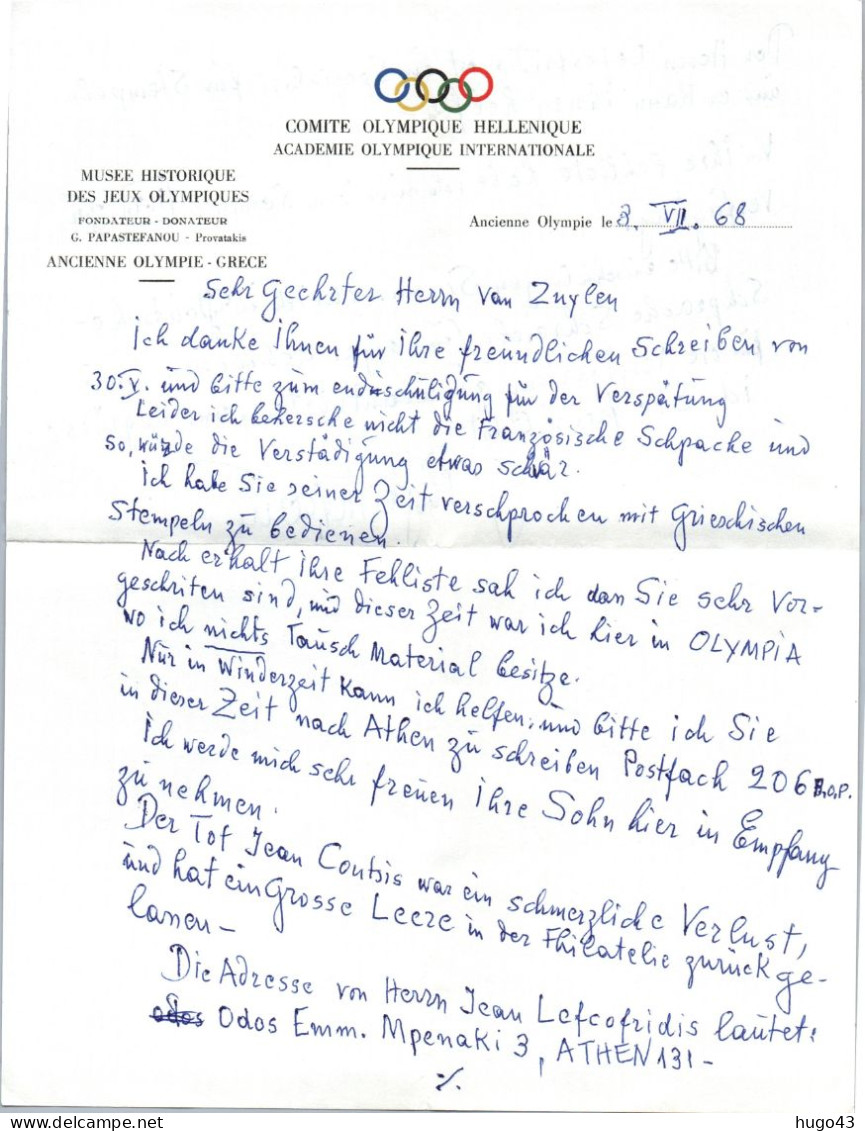 COMITE OLYMPIQUE HELLENIQUE
ACADEMIE OLYMPIQUE INTERNATIONALE
MUSEE HISTORIQUE
DES JEUX OLYMPIQUES
FONDATEUR - DONATEUR
G. PAPASTEFANOU - Provatakis
ANCIENNE OLYMPIE - GRECE
Ancienne Olympie le 3. VII. 68
Sehr Geehrter Herrn Van Zuylen
Ich danke Ihnen für ihre freündlichen Schreiben von
30.V. und bitte zum endüschüligung für der Verspätung
Leider ich behersche nicht die Französische Schpache und
so, würde die Verstädigung etwas schwär.
Ich habe Sie seiner Zeit verschprochen mit Grieschischen
Stempeln zü bedienen.
Nach erhalt ihre Fehlliste sah ich dan Sie sehr Vor-
geschriten sind, und dieser Zeit war ich hier in OLYMPIA
wo ich nichts Taüsch Material besitze.
Nür in Winderzeit kann ich helfen, und bitte ich Sie
in dieser Zeit nach Athen zü schreiben Postfach 206
Ich werde mich sehr freüen ihre Sohn hier in Empfang
zü nehmen.
Der Tot Jean Coutsis war ein schmerzliche Verlust,
und hat ein Grosse Leere in der Philatelie zürück ge-
lassen -
Die Adresse von Herrn Jean Lefcofridis lautet:
Odos Emm. Mpenaki 3, ATHEN 131 -
./.
hugo43